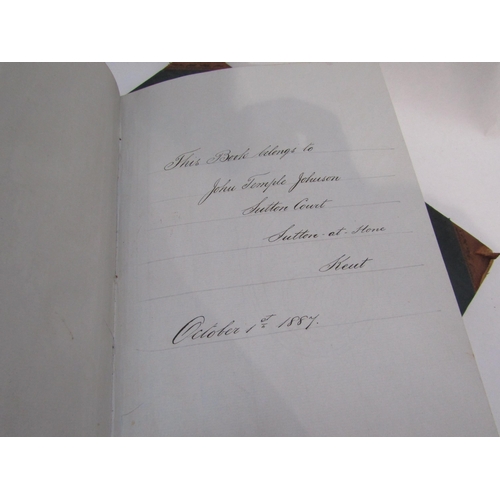 This Book belongs to
John Temple Johnson
Sutton Court
Sutton-at-Hone
Kent
October 1st 1887.